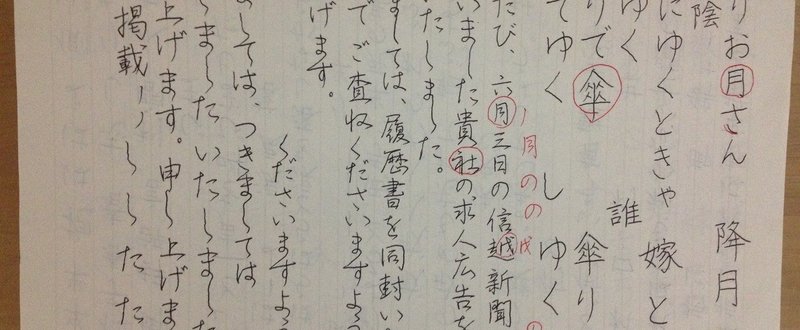 りお月さん 降月
陰
にゆくときゃ 嫁と
ゆく 誰
りで傘 傘り
てゆく しゆく
月のの戉
たび、六月三日の信越新聞
いました貴社の求人広告を
たしました。
ましては、履歴書を同封い
でご査収くださいますよう
げます。
くださいますよう
しては、つきましては
しました いたしました
上げます。申し上げま
掲載 しした た